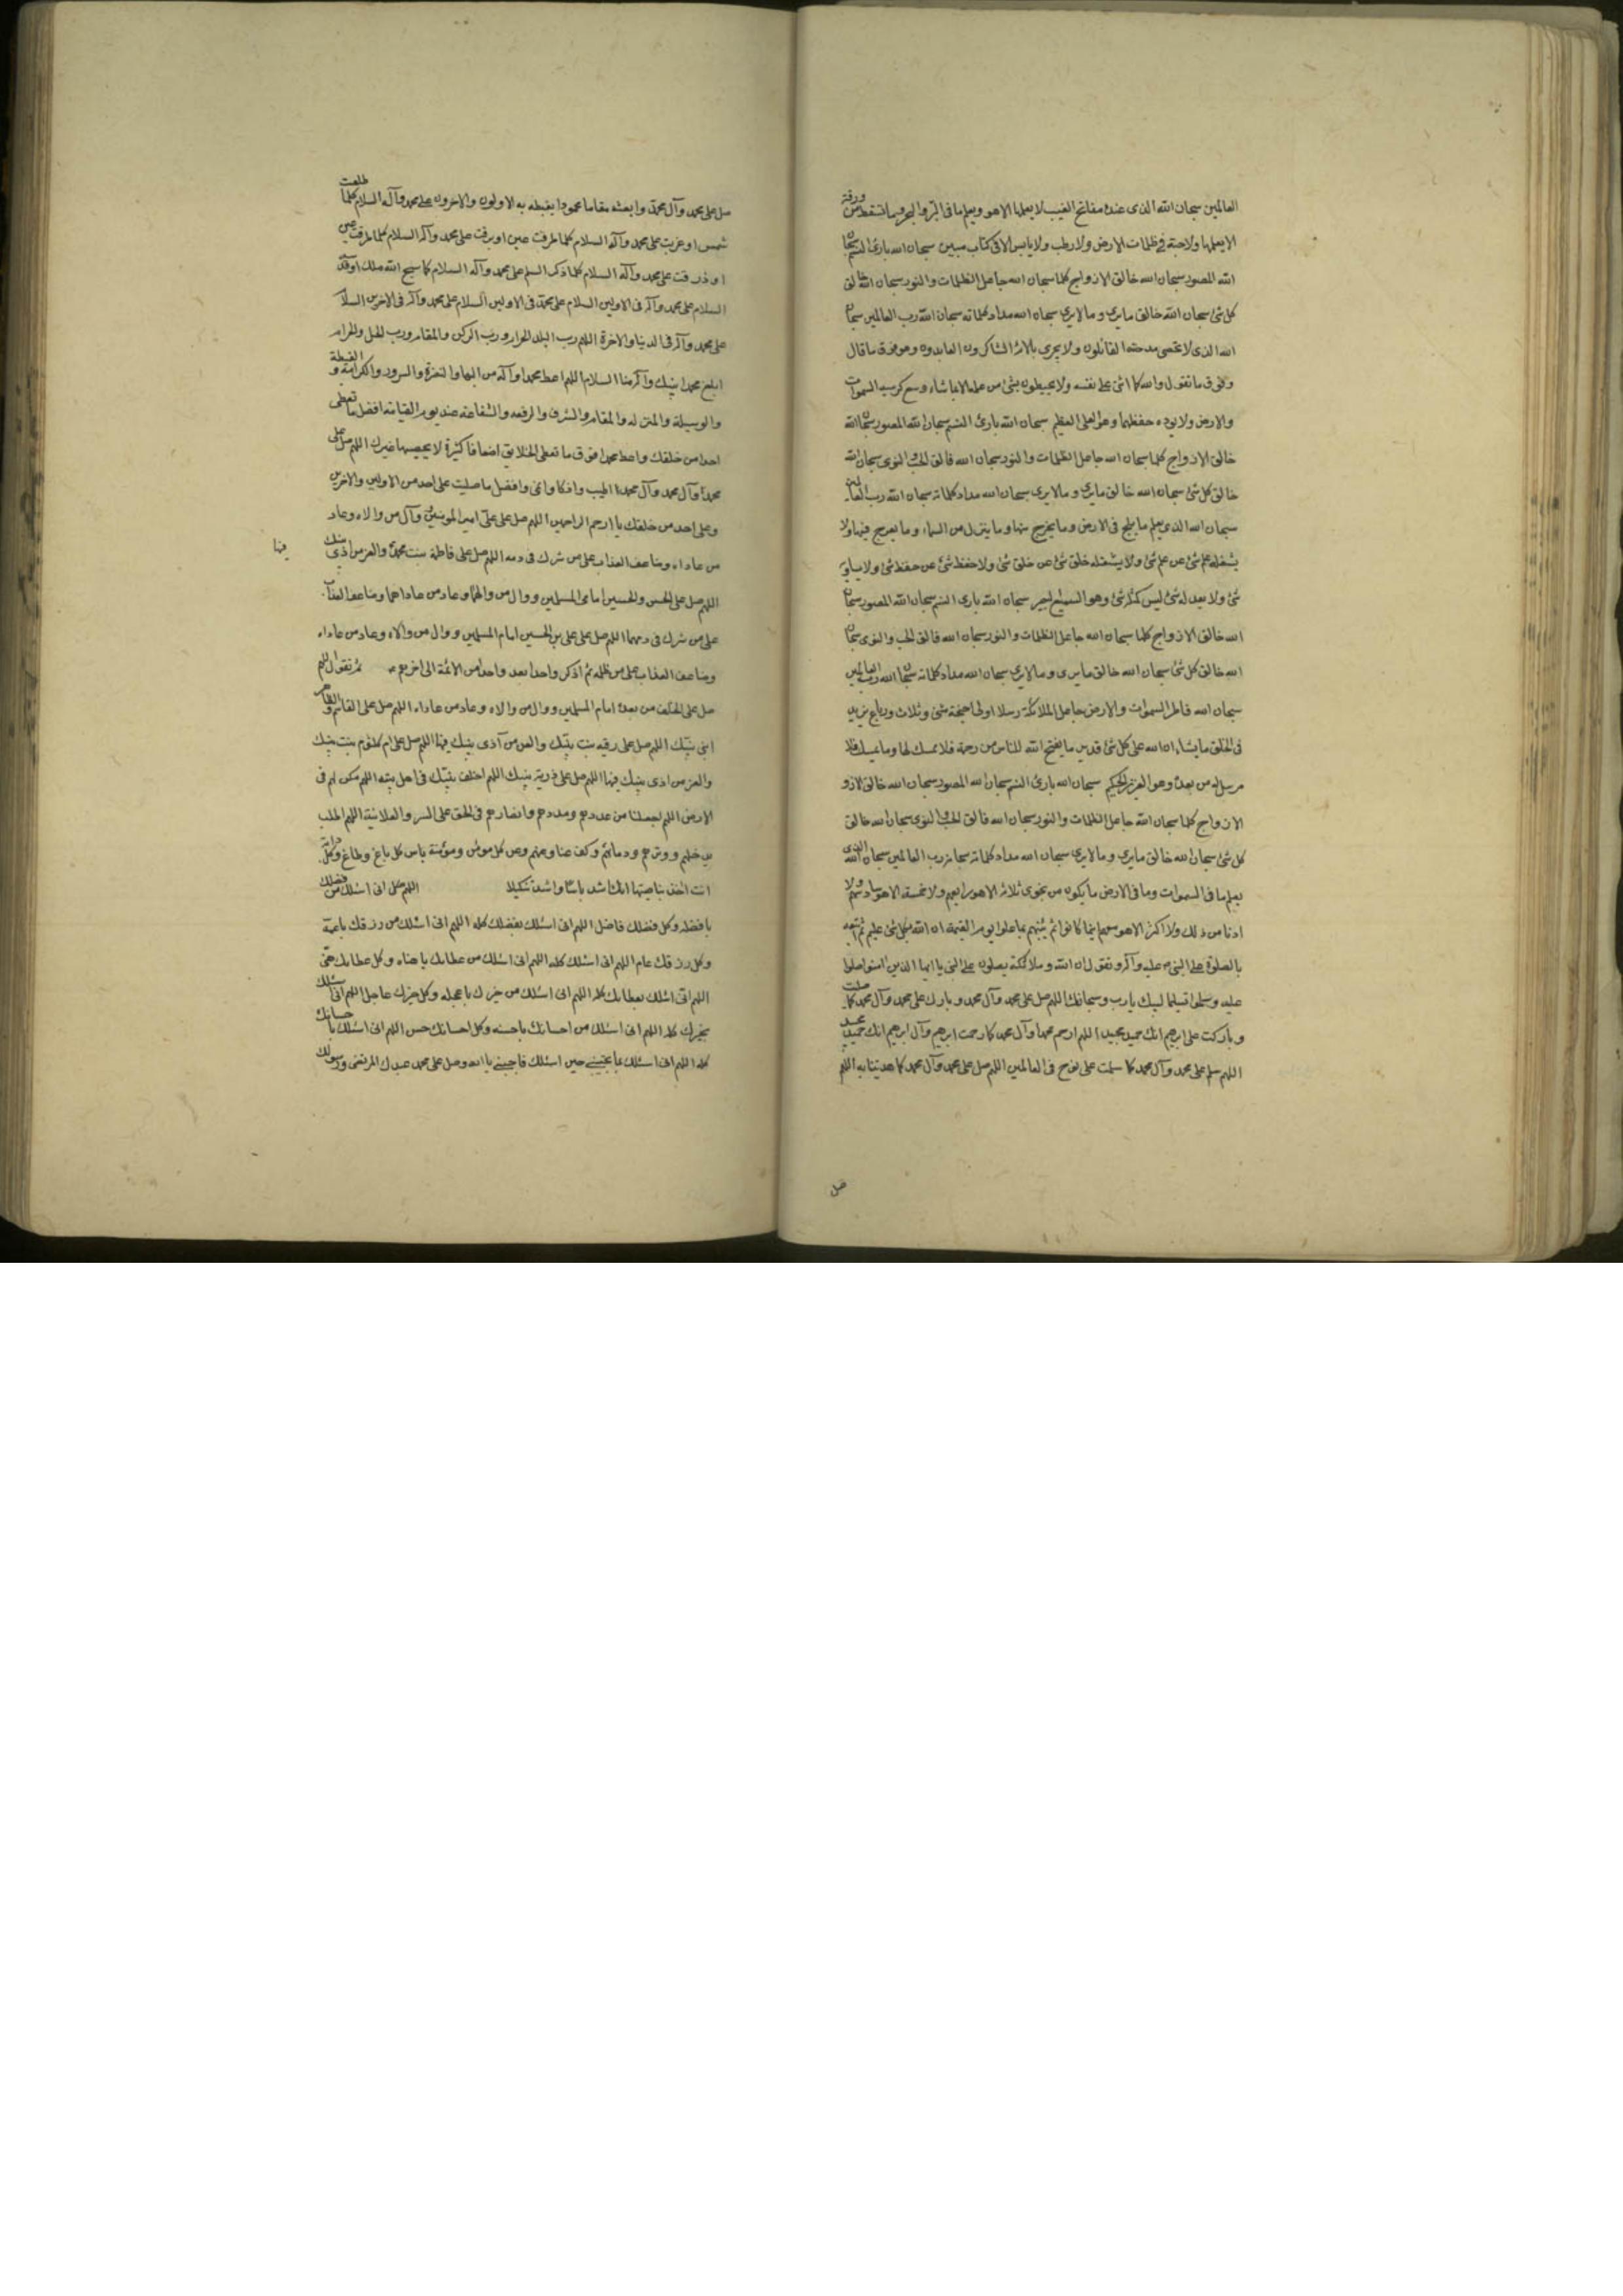 العالمين سبحان الله الذى عنده مفاتح الغيب لا يعلمها الا هو ويعلم ما فى البر والبحر وما تسقط من ورقة
الا يعلمها ولا حبة فى ظلمات الارض ولا رطب ولا يابس الا فى كتاب مبين سبحان الله بارئ النسم سبحان
الله المصور سبحان الله خالق الازواج كلها سبحان الله جاعل الظلمات والنور سبحان الله خالق
كل شئ سبحان الله خالق ما يرى وما لا يرى سبحان الله مداد كلماته سبحان الله رب العالمين سبحان
الله الذى لا يحصى مدحته القائلون ولا يجزى بالائه الشاكرون العابدون وهو فوق ما قال
وفوق ما نقول والله كما اثنى على نفسه ولا يحيطون بشئ من علمه الا بما شاء وسع كرسيه السموات
والارض ولا يوده حفظهما وهو العلى العظيم سبحان الله بارئ النسم سبحان الله المصور سبحان الله
خالق الازواج كلها سبحان الله جاعل الظلمات والنور سبحان الله فالق الحب والنوى سبحان الله
خالق كل شئ سبحان الله خالق ما يرى وما لا يرى سبحان الله مداد كلماته سبحان الله رب العالمين
سبحان الله الذى يعلم ما يلج فى الارض وما يخرج منها وما ينزل من السماء وما يعرج فيها ولا
يشغله علم شئ عن علم شئ ولا يشغله خلق شئ عن خلق شئ ولا حفظ شئ عن حفظ شئ ولا يساويه
شئ ولا يعدله شئ ليس كمثله شئ وهو السميع البصير سبحان الله بارئ النسم سبحان الله المصور سبحان
الله خالق الازواج كلها سبحان الله جاعل الظلمات والنور سبحان الله فالق الحب والنوى سبحان
الله خالق كل شئ سبحان الله خالق ما يرى وما لا يرى سبحان الله مداد كلماته سبحان الله رب العالمين
سبحان الله فاطر السموات والارض جاعل الملائكة رسلا اولى اجنحة مثنى وثلاث ورباع يزيد
فى الخلق ما يشاء ان الله على كل شئ قدير ما يفتح الله للناس من رحمة فلا ممسك لها وما يمسك فلا
مرسل له من بعده وهو العزيز الحكيم سبحان الله بارئ النسم سبحان الله المصور سبحان الله خالق الازو
الازواج كلها سبحان الله جاعل الظلمات والنور سبحان الله فالق الحب والنوى سبحان الله خالق
كل شئ سبحان الله خالق ما يرى وما لا يرى سبحان الله مداد كلماته سبحان رب العالمين سبحان الله الذى
يعلم ما فى السموات وما فى الارض ما يكون من نجوى ثلاثة الا هو رابعهم ولا خمسة الا هو سادسهم ولا
ادنا من ذلك ولا اكثر الا هو معهم اينما كانوا ثم ينبئهم بما عملوا يوم القيمة ان الله بكل شئ عليم ثم تتبعه
بالصلوة على النبى عليه وآله وتقول ان الله وملائكته يصلون على النبى يا ايها الذين امنوا صلوا
عليه وسلموا تسليما لبيك يا رب وسبحانك اللهم صل على محمد وآل محمد وبارك على محمد وآل محمد كما صليت
وباركت على ابرهيم انك حميد مجيد اللهم ارحم محمدا وآل محمد كما رحمت ابرهيم وآل ابرهيم انك حميد مجيد
اللهم سلم على محمد وآل محمد كما سلمت على نوح فى العالمين اللهم صل على محمد وآل محمد كما هديتنا به اللهم
صل
صل على محمد وآل محمد وابعثه مقاما محمودا يغبطه به الاولون والاخرون على محمد وآله السلام كلما طلعت
شمس او غربت على محمد وآله السلام كلما طرفت عين او برقت على محمد وآله السلام كلما طرفت عين
او ذرفت على محمد وآله السلام كلما ذكر السلم على محمد وآله السلام كلما سبح الله ملك او قدسه
السلام على محمد وآله فى الاولين السلام على محمد فى الاولين السلام على محمد وآله فى الاخرين السلا
على محمد وآله فى الدنيا والاخرة اللهم رب البلد الحرام ورب الركن والمقام ورب الحل والحرام
ابلغ محمدا نبيك وآله منا السلام اللهم اعط محمدا وآله من البهاء والنضرة والسرور والكرامة والغبطة
والوسيلة والمنزلة والمقام والشرف والرفعه والشفاعة عندك يوم القيامة افضل ما تعطى
احدا من خلقك واعط محمدا فوق ما تعطى الخلايق اضعافا كثيرة لا يحصيها غيرك اللهم صل على
محمد وآل محمد وآل محمدا اطيب وازكا وانمى وافضل ما صليت على احد من الاولين والاخرين
وعلى احد من خلقك يا ارحم الراحمين اللهم صل على على امير المومنين وآل من والاه وعاد
من عاداه وضاعف العذاب على من شرك فى دمه اللهم صل على فاطمة بنت محمد والعن من اذى نبيك
فيها
اللهم صل على الحسن والحسين امامى المسلمين ووال من والاهما وعاد من عاداهما وضاعف العذاب
على من شرك فى دمهما اللهم صل على على بن الحسين امام المسلمين ووال من والاه وعاد من عاداه
وضاعف العذاب على من ظلمه ثم اذكر واحدا بعد واحد من الائمة الى اخرهم ثم تقول اللهم
صل على الخلف من بعده امام المسلمين ووال من والاه وعاد من عاداه اللهم صل على القاسم والطاهر
ابنى نبيك اللهم صل على رقيه بنت نبيك والعن من آذى نبيك فيها اللهم صل على ام كلثوم بنت نبيك
والعن من اذى نبيك فيها اللهم صل على ذرية نبيك اللهم اخلف نبيك فى اهل بيته اللهم مكن لهم فى
الارض اللهم اجعلنا من عددهم ومددهم وانصارهم فى الحق على السر والعلانية اللهم اطلب
بذحلهم ووترهم ودمائهم وكف عنا وعنهم وعن كل مومن ومؤمنة باس كل باغ وطاغ وكل دابة
انت اخذ بناصيتها انك اشد باسا واشد تنكيلا اللهم انى اسئلك من فضلك
بافضله وكل فضلك فاضل اللهم انى اسئلك بفضلك كله اللهم انى اسئلك من رزقك باعمه
وكل رزقك عام اللهم انى اسئلك كله اللهم انى اسئلك من عطايك باهناه وكل عطايك هنئ
اللهم انى اسئلك بعطايك كله اللهم انى اسئلك من خيرك باعجله وكل خيرك عاجل اللهم انى اسئلك
بخيرك كله اللهم انى اسئلك من احسانك باحسنه وكل احسانك حسن اللهم انى اسئلك باحسانك
كله اللهم انى اسئلك بما تجيبنى حين اسئلك فاجبنى يا الله وصل على محمد عبدك المرتضى ورسولك